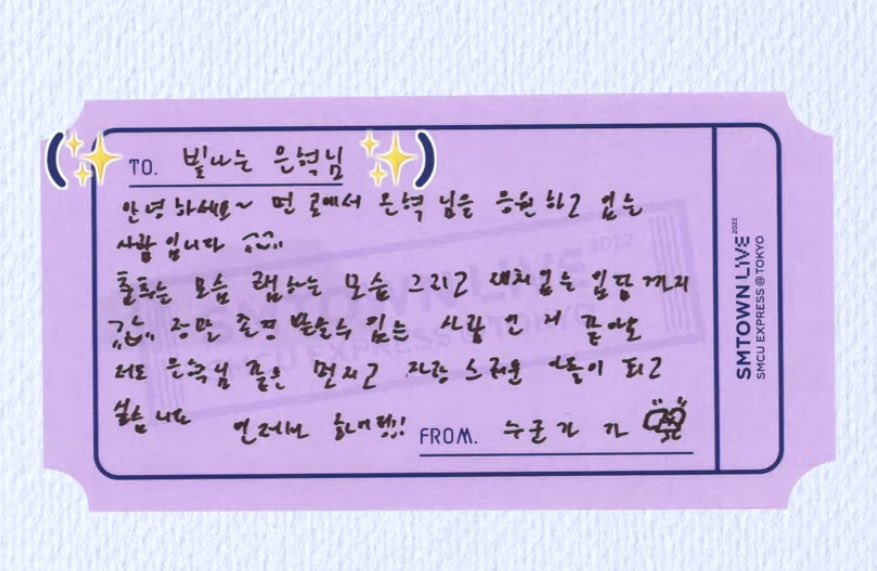 TO. 빛나는 은혁님
안녕하세요~ 먼 곳에서 은혁 님을 응원하고 있는
사람입니다
춤추는 모습 랩하는 모습 그리고 재치있는 입담까지
정말 존경 받을수 있는 사람인 거 같아요
저도 은혁님 같은 멋지고 자랑스러운 아돌이 되고
싶습니다 언제나 화이팅!!
FROM. 누군가가
SMTOWN LIVE 2022
SMCU EXPRESS @TOKYO